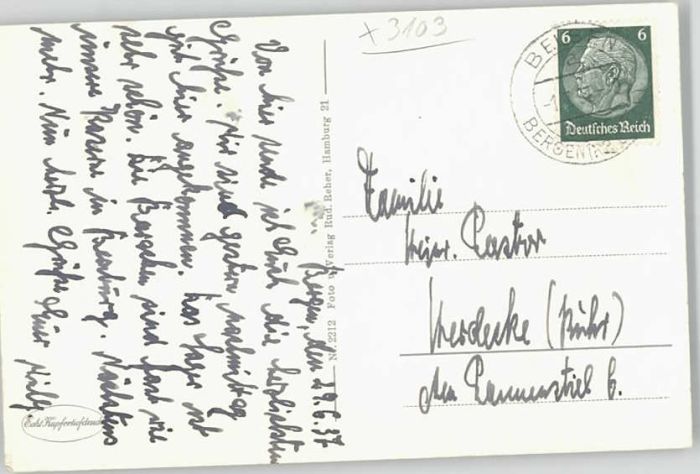 x 3103
6 6
Deutsches Reich
BERGEN
Bergen, den 29.6.37
Von hier sende ich Euch die herzlichsten
Grüße. Wir sind gestern nachmittag
gut hier angekommen. Das Lager ist
sehr schön. Die Baracken sind fast wie
unsere Kaserne in Bernburg. Nächstens
mehr. Nun herzl. Grüße Euer Willy
Echt Kupfertiefdruck
Nr. 2212 Foto u. Verlag Rud. Reher, Hamburg 21
Familie
Pastor
Herdecke (Ruhr)
Am Tannenstiel 6.